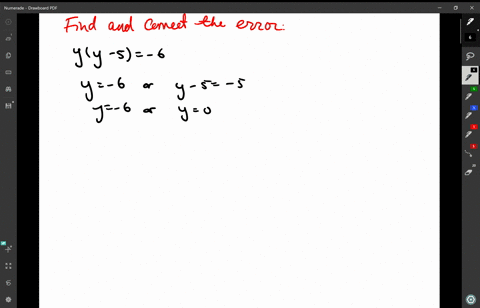 Numerade - Drawboard PDF
Find and correct the error:
y(y-5)=-6
y=-6 or y-5=-5
y=-6 or y=0
6